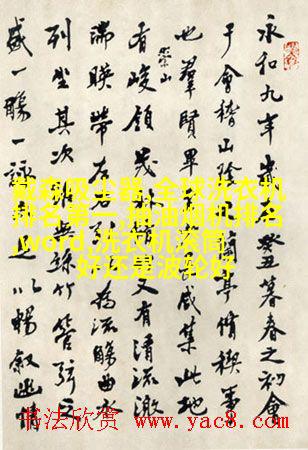 永和九年歲在癸丑暮春之初會
于會稽山陰之蘭亭脩稧事
也羣賢畢至少長咸集此地
有崇山峻領茂林又有清流激
湍暎帶左右為流觴曲水
列坐其次無絲竹管弦之
盛一觴一詠足以暢敘幽情
戴森吸尘器,全球洗衣机
排名第一,抽油烟机排名
,word,洗衣机滚筒
好还是波轮好
书法欣赏 www.yac8.com